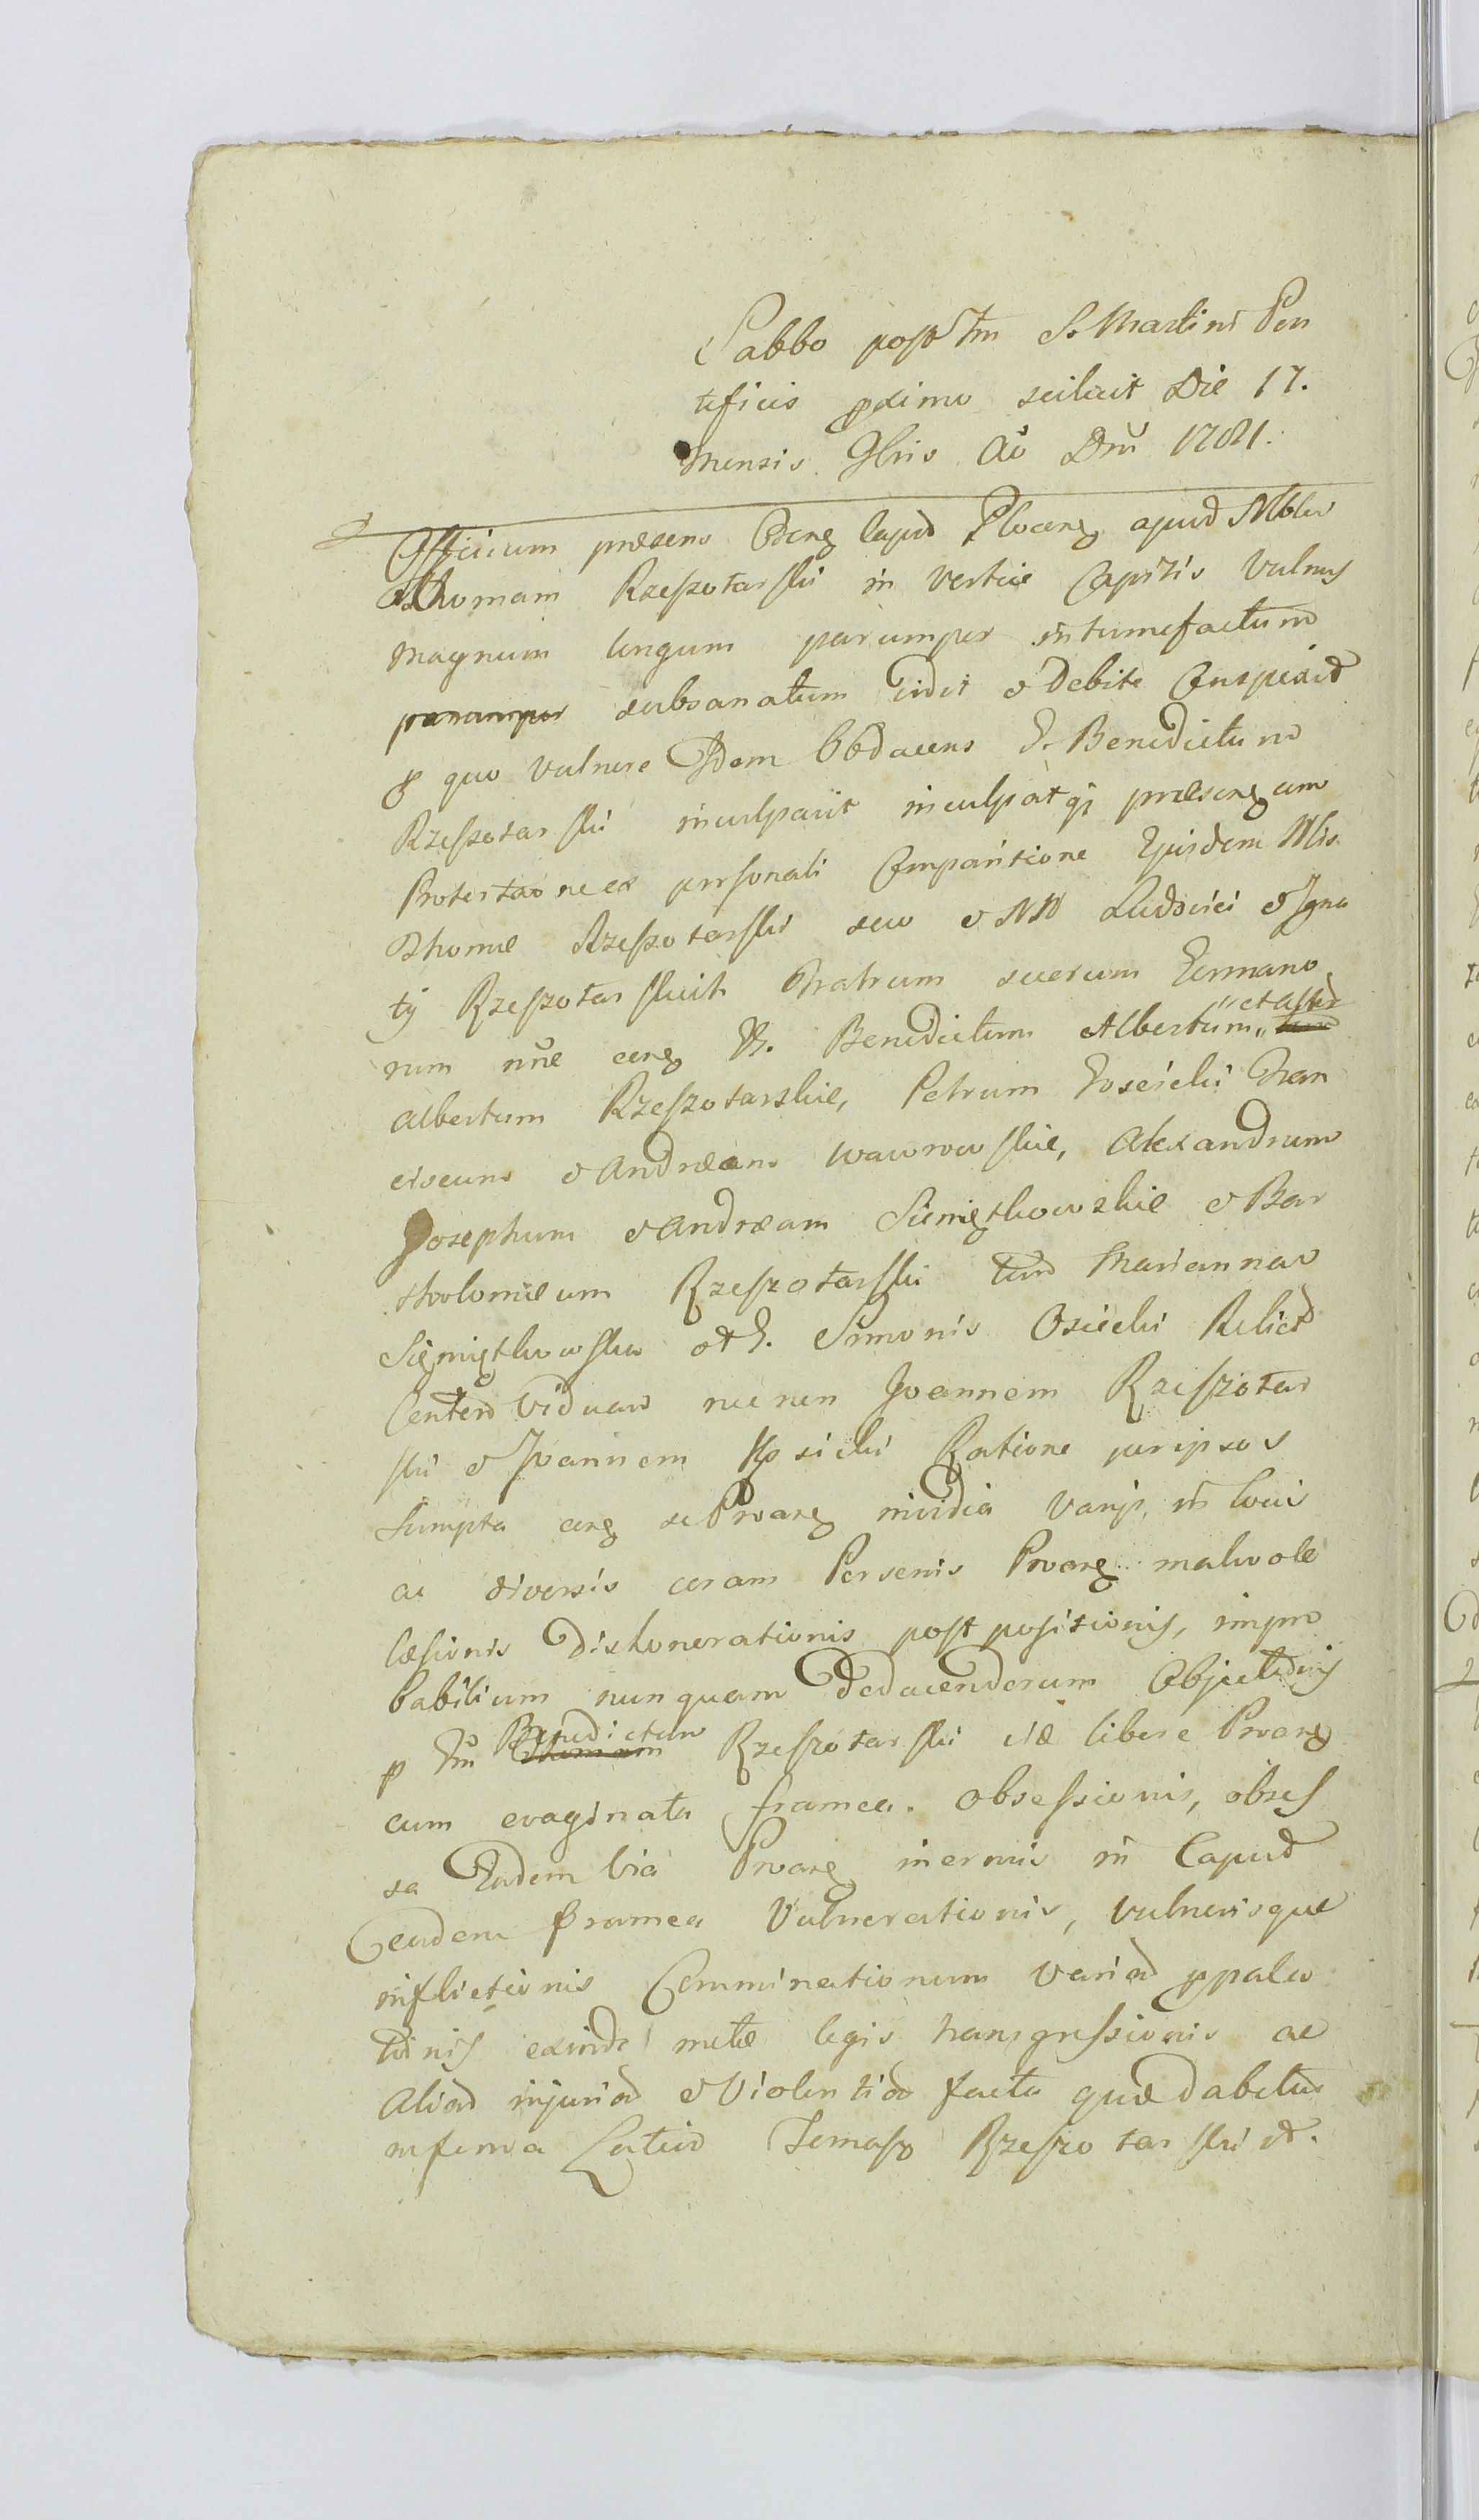 Sabbo post Fm S. Martini Pon
tificis pximo scilicet Die 17.
Mensis 9bris Ao Dni 1781.
Officium præsens Cscng Capnd Plocens apud Noblem
Thomam Rzeszotarski in vertice Capitis vulnus
magnum longum parumper intumefactum
parumper subsanatum vidit & debite Conspexit
p quo vulnere Idem Obducens G. Benedictum
Rzeszotarski inculpavit inculpatq præseng cum
Protestaone ex personali Comparitione Ejusdem Nlis
Thomæ Rzeszotarski suo & NN Ludovici & Igna
tij Rzeszotarskich Fratrum suorum Germano
rum nne ceng G. Benedictum Albertum " et alter
Albertum Rzeszotarskie, Petrum Kosicki Fran
ciscum & Andræam Wawrowskie, Alexandrum
Josephum & Andræam Siemiętkowskie & Bar
tholomæum Rzeszotarski tum Mariannam
Siemiętkowska et G. Simonis Osiecki Relict
Consten Viduam nec non Joannem Rzeszotar
ski & Joannem Kosicki Ratione per ipsos
Sumpta ceng se Proang invidia Varijs in locis
ac diversis coram Personis Proang malivole
læsionis Dishonorationis postpositionis, impro
babilium nunquam Deducendorum Objectionis
p Fm Benedictum Rzeszotarski viæ libere Proang
cum evaginata framea obsessionis, obses
sa Eadem via Proang inermis in Caput
Eadem framea Vulnerationis, vulnerisque
inflictionis Comminationum variar ppala
tionis exinde metæ legis transgressionis ac
aliar injuriar & violentiar facta quæ dabitur
inferius Latius Tomasz Rzeszotarski &.